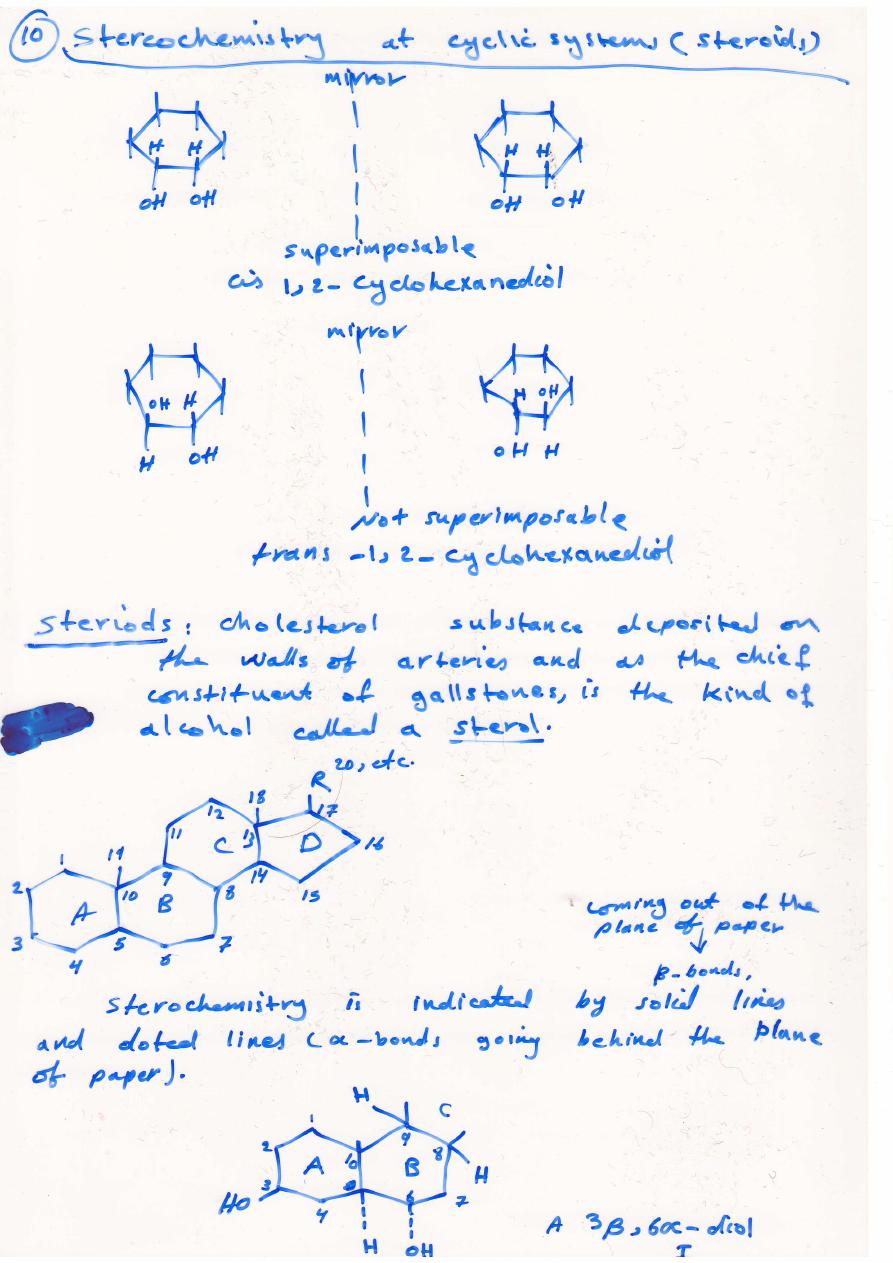 10 Stereochemistry at cyclic systems (steroids)
mirror
H H H H
OH OH OH OH
superimposable
cis 1,2- cyclohexanediol
mirror
OH H H OH
H OH OH H
Not superimposable
trans -1,2- cyclohexanediol
Steriods: cholesterol substance deposited on
the walls of arteries and as the chief
constituent of gallstones, is the kind of
alcohol called a sterol.
20, etc.
R
12 18 17
11 C 13 D 16
1 19 9 14
2 10 B 8 15
A
3 5 7
4 6
coming out of the
plane of paper
β-bonds,
Sterochemistry is indicated by solid lines
and doted lines (α-bonds going behind the plane
of paper).
H C
1 9
2 10 8
A B H
3 7
HO 4 6
H OH
A 3β, 6α- diol
I